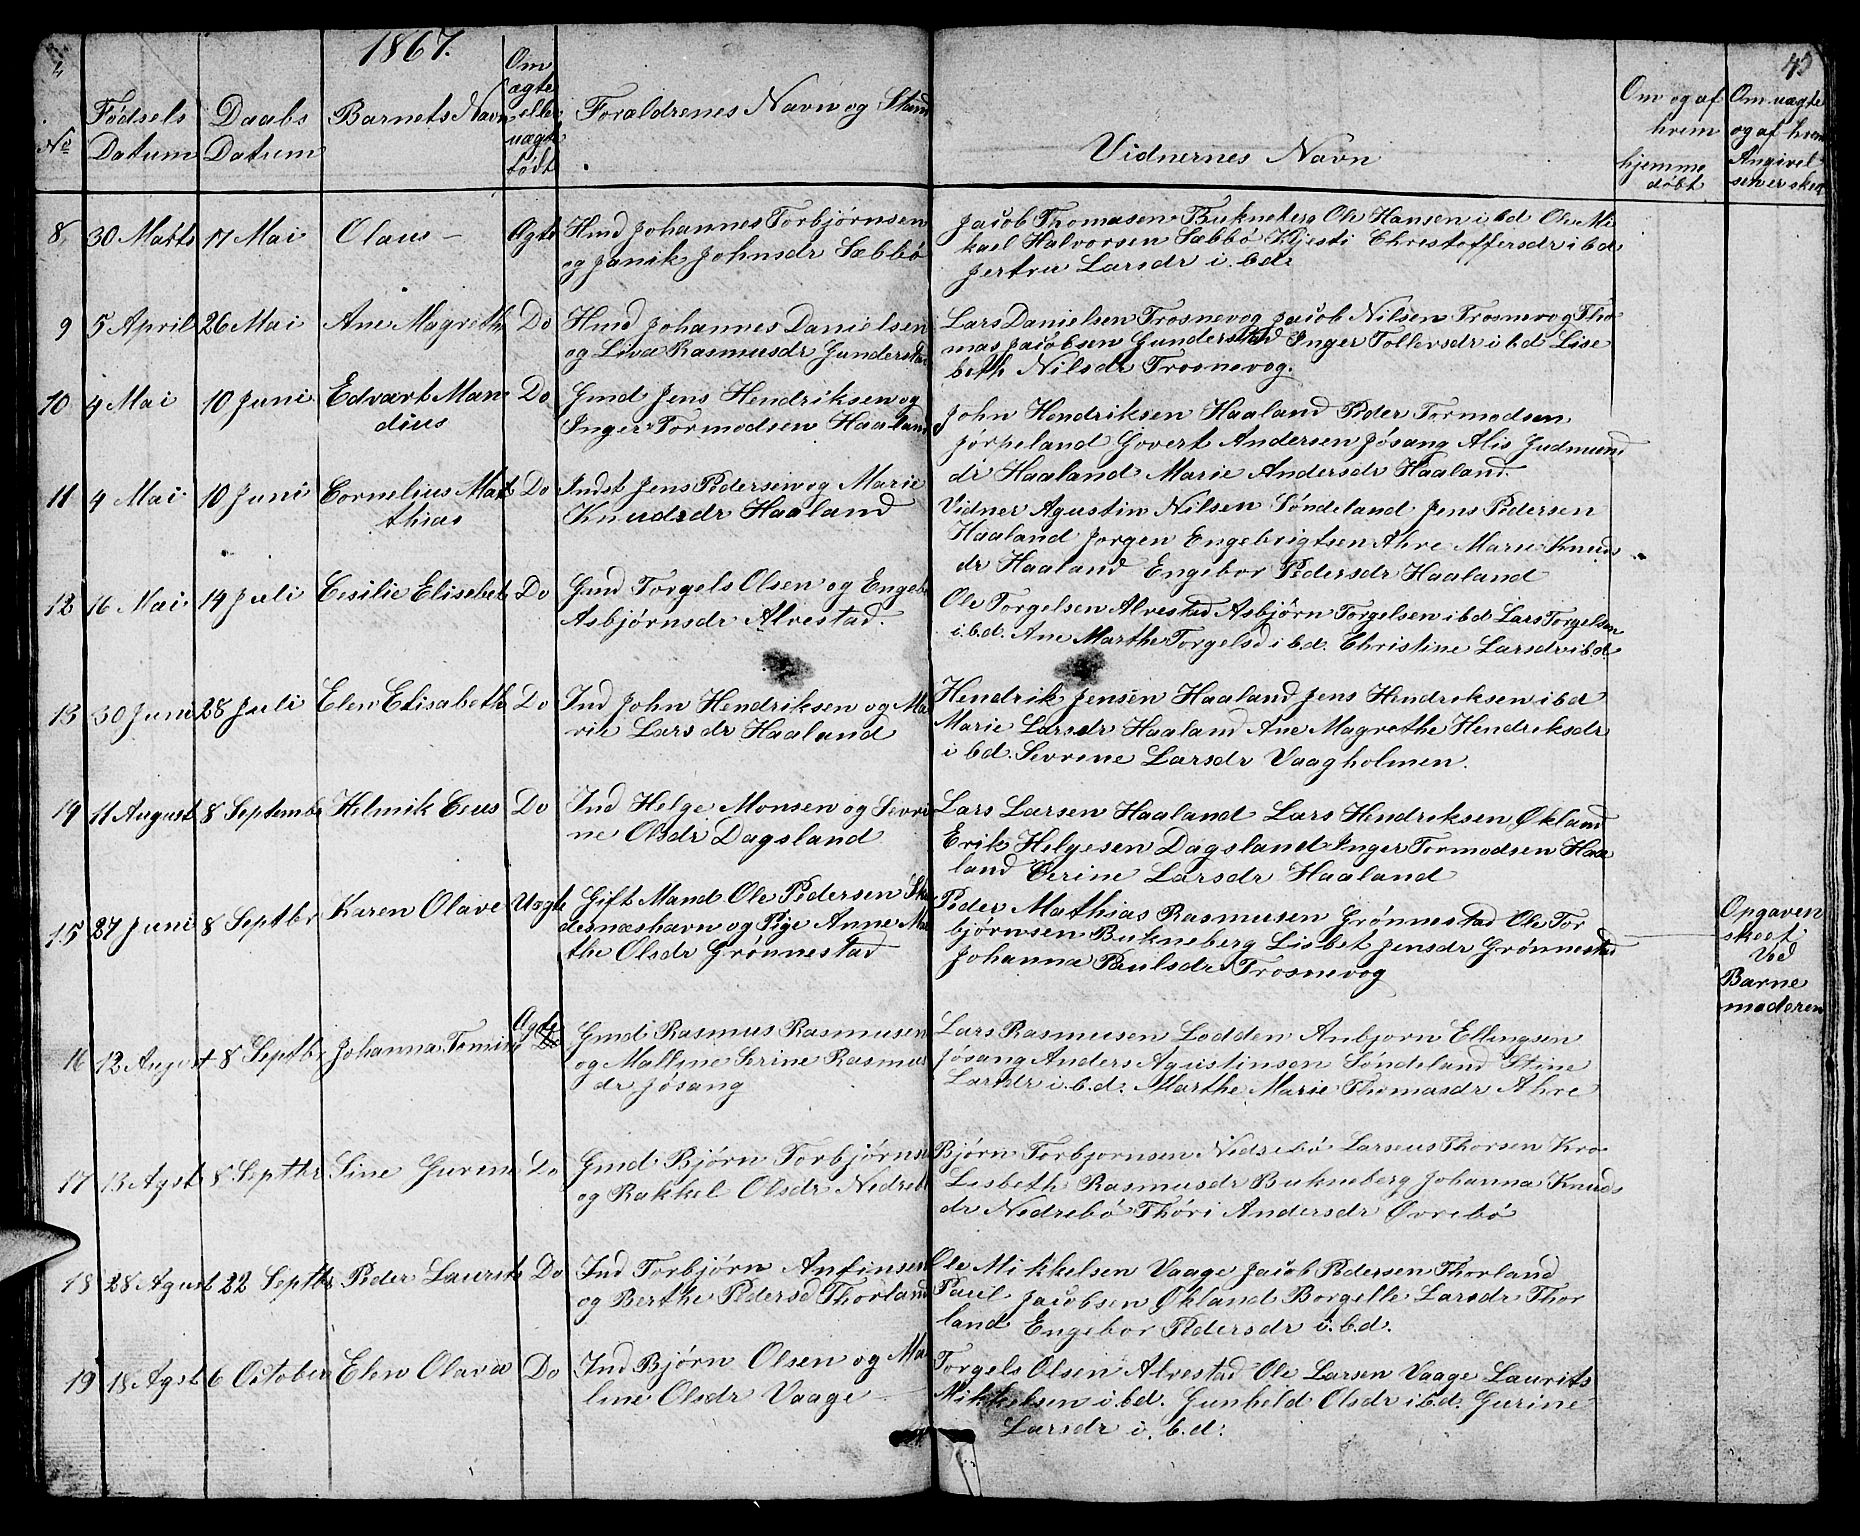 1867.
45
No
Fødsels Datum
Daabs Datum
Barnets Navn
Om ægte eller uægte født
Forældrenes Navn og Stand
Vidnernes Navn
Om og af hvem hjemme døbt
Om uægte og af hvem Angivelsen er skeet
8, 30 Marts 17 Mai Olaus – Ægte Hmd Johannes Torbjørnsen
og Janik Johnsdr Sæbbø
Jacob Thomasen Bukneberg Ole Hansen i bd Ole Mi
kael Halvorsen Sæbbø Kjesti Chrestoffersdr i bd
Jertru Larsdr i. bd:
9 5 April 26 Mai Ane Magrethe Do Hmd Johannes Danielsen
og Liva Rasmusdr Gunderstad
Lars Danielsen Trosnevog Jacob Nilsen Trosnevog Tho
mas Jacobsen Gunderstad Inger Tollevsdr i bd Lise
beth Nilsdr Trosnevog.
10 4 Mai 10 Juni Edvart Man
dius Do Gmd Jens Hendriksen og
Inger Tormodsen Haaland
John Hendriksen Haaland Peder Tormodsen
Jørpeland Govert Andersen Jøsang Alis Judmund
dr Haaland Marie Andersdr Haaland
11 4 Mai 10 Juni Cornelius Mat
thias Do Indst Jens Pedersen og Marie
Knudsdr Haaland
Vidner Agustin Nilsen Søndeland Jens Pedersen
Haaland Jorgen Engebrigtsen Ahre Marie Knuds
dr Haaland Engebor Pedersdr Haaland
12 16 Mai 14 Juli Cesilie Elisebet Do Gmd Torgels Olsen og Engebor
Asbjørnsdr Alvestad.
Ole Torgelsen Alvestad Asbjørn Torgelsen i bd Lars Torgelsen
i.b.d. Ane Marthe Torgelsd i bd. Christine Larsdr i bd.
13 30 Juni 28 Juli Elen Elisabeth Do Ind John Hendriksen og Ma
rie Larsdr Haaland
Hendrik Jensen Haaland Jens Hendreksen i bd
Marie Larsdr Haaland Ane Magrethe Hendriksdr
i bd. Sevrene Larsdr Vaagholmen.
14 11 August 8 Septembr Helmik Eeus Do Ind Helge Monsen og Sevri
ne Olsdr Dagsland
Lars Larsen Haaland Lars Hendriksen Økland
Erik Helgesen Dagsland Inger Tormodsen Haa
land Verine Larsdr Haaland
15 27 Juni 8 Septbr Karen Olave Uægte Gift Mand Ole Pedersen Sku
desnæshavn og Pige Anne Mar
the Olsdr Grønnestad
Peder Mathias Rasmusen Grønnestad Ole Tor
bjørnsen Bukneberg Lisbet Jensdr Grønnestad
Johanna Paulsdr Trosnevog
Opgaven
skeet
Ved
Barne
moderen
16 12 August 8 Septbr Johanna Tomine Ægte Gmd Rasmus Rasmusen
og Mallene Serine Rasmus
dr Jøsang
Lars Rasmusen Lodden Anbjorn Ellingsen
Jøsang Anders Agustinsen Søndeland Stine
Larsdr i.b.d: Marthe Marie Thomasdr Ahre
17 13 Agst 8 Septbr Sine Gurine Do Gmd Bjørn Torbjørnsen
og Rakkel Olsdr Nedrebø
Bjørn Torbjornsen Nedrebø Larseus Thorsen Kro
Lisbeth Rasmusdr Bukneberg Johanna Knuds
dr Nedrebø Thøri Andersdr Øvrebø
18 28 Agust 22 Septbr Peder Laurits Do Ind Torbjørn Anfinsen
og Berthe Pedersd Thorland
Ole Mikkelsen Vaage Jacob Pedersen Thorland
Paul Jacobsen Økland Borgelle Larsdr Thor
land Engebor Pedersdr i.b.d.
19 18 Agst 6 October Elen Olava Do Ind Bjørn Olsen og Ma
line Olsdr Vaage
Torgels Olsen Alvestad Ole Larsen Vaage Laurits
Mikkelsen i bd. Gunheld Olsdr i bd. Gurine
Larsdr i. b.d: